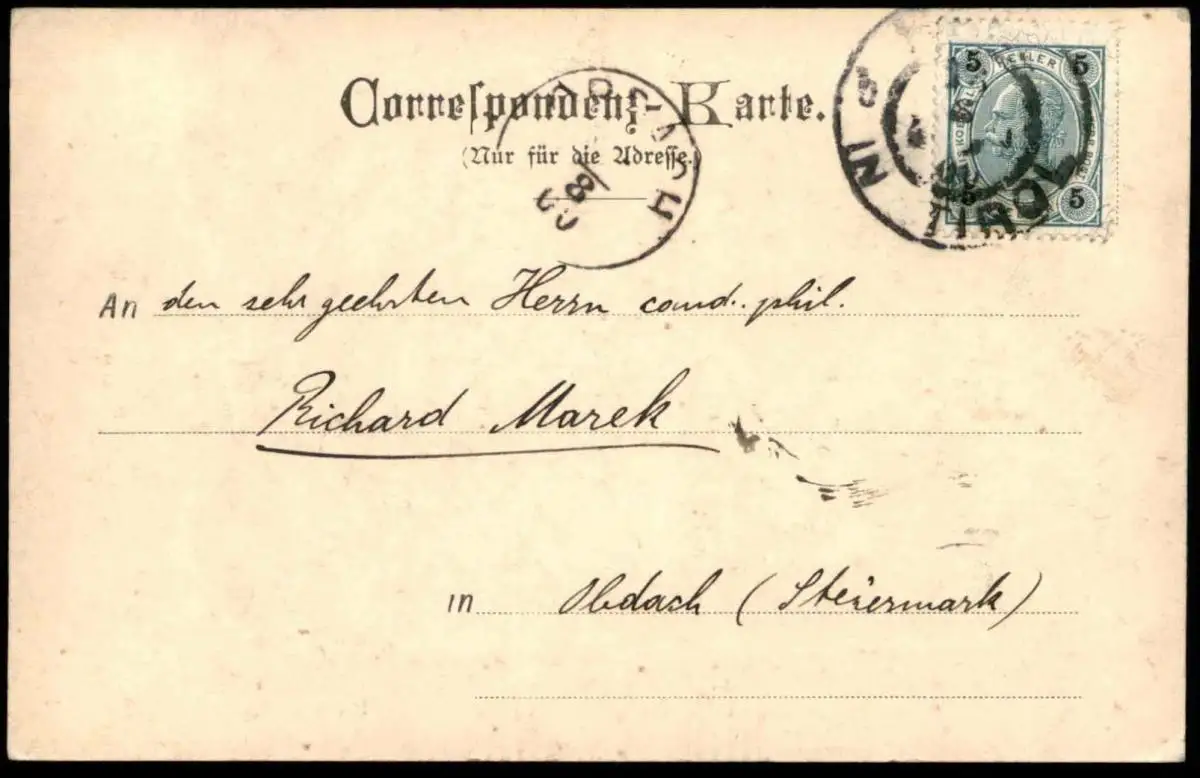 Correspondenz-Karte.
(Nur für die Adresse.)
5 HELLER 5
5 5
TIROL
An den sehr geehrten Herrn cand. phil.
Richard Marek
in Obdach (Steiermark)